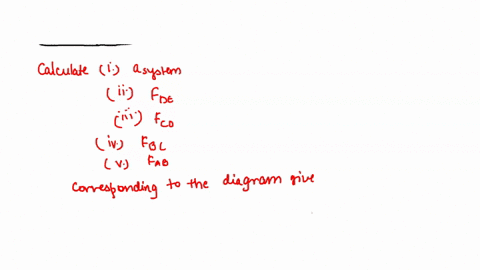 Calculate (i.) a system
(ii.) F_DE
(iii.) F_CD
(iv.) F_BC
(v.) F_AB
Corresponding to the diagram give